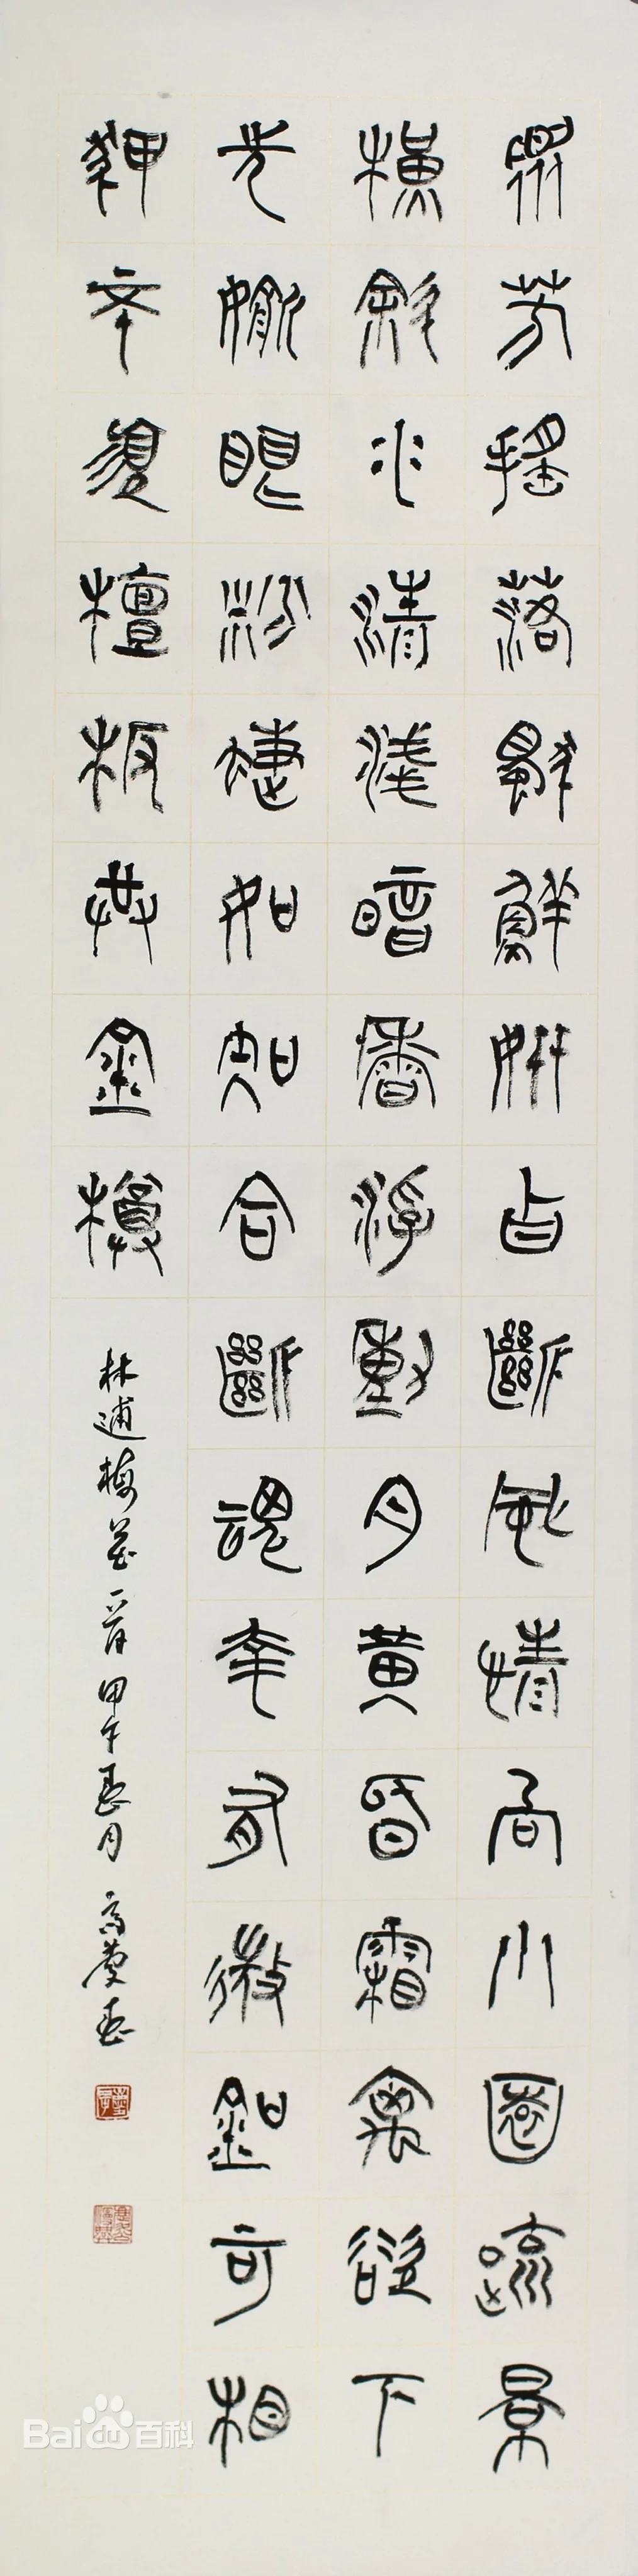 眾芳搖落獨鮮妍占斷風情向小園疏景
橫斜水清淺暗香浮動月黃昏霜禽欲下
先偷眼粉蝶如知合斷魂幸有微吟可相
狎不須檀板共金樽
林逋梅花一首甲午春月高慶春
Baidu百科